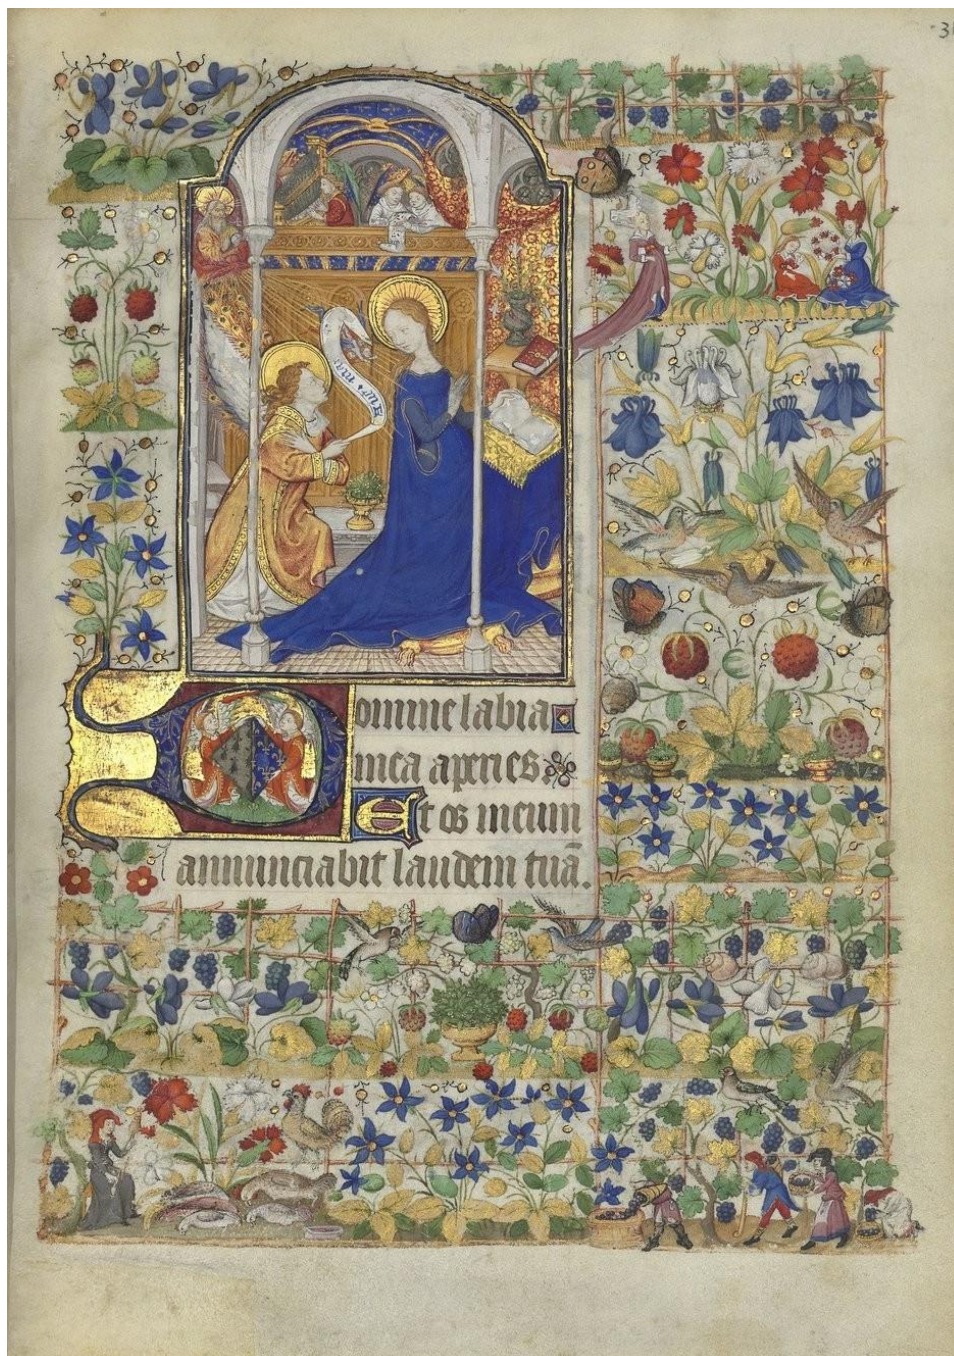 Aue
Domine labia
mea aperies
Et os meum
annunciabit laudem tuā.